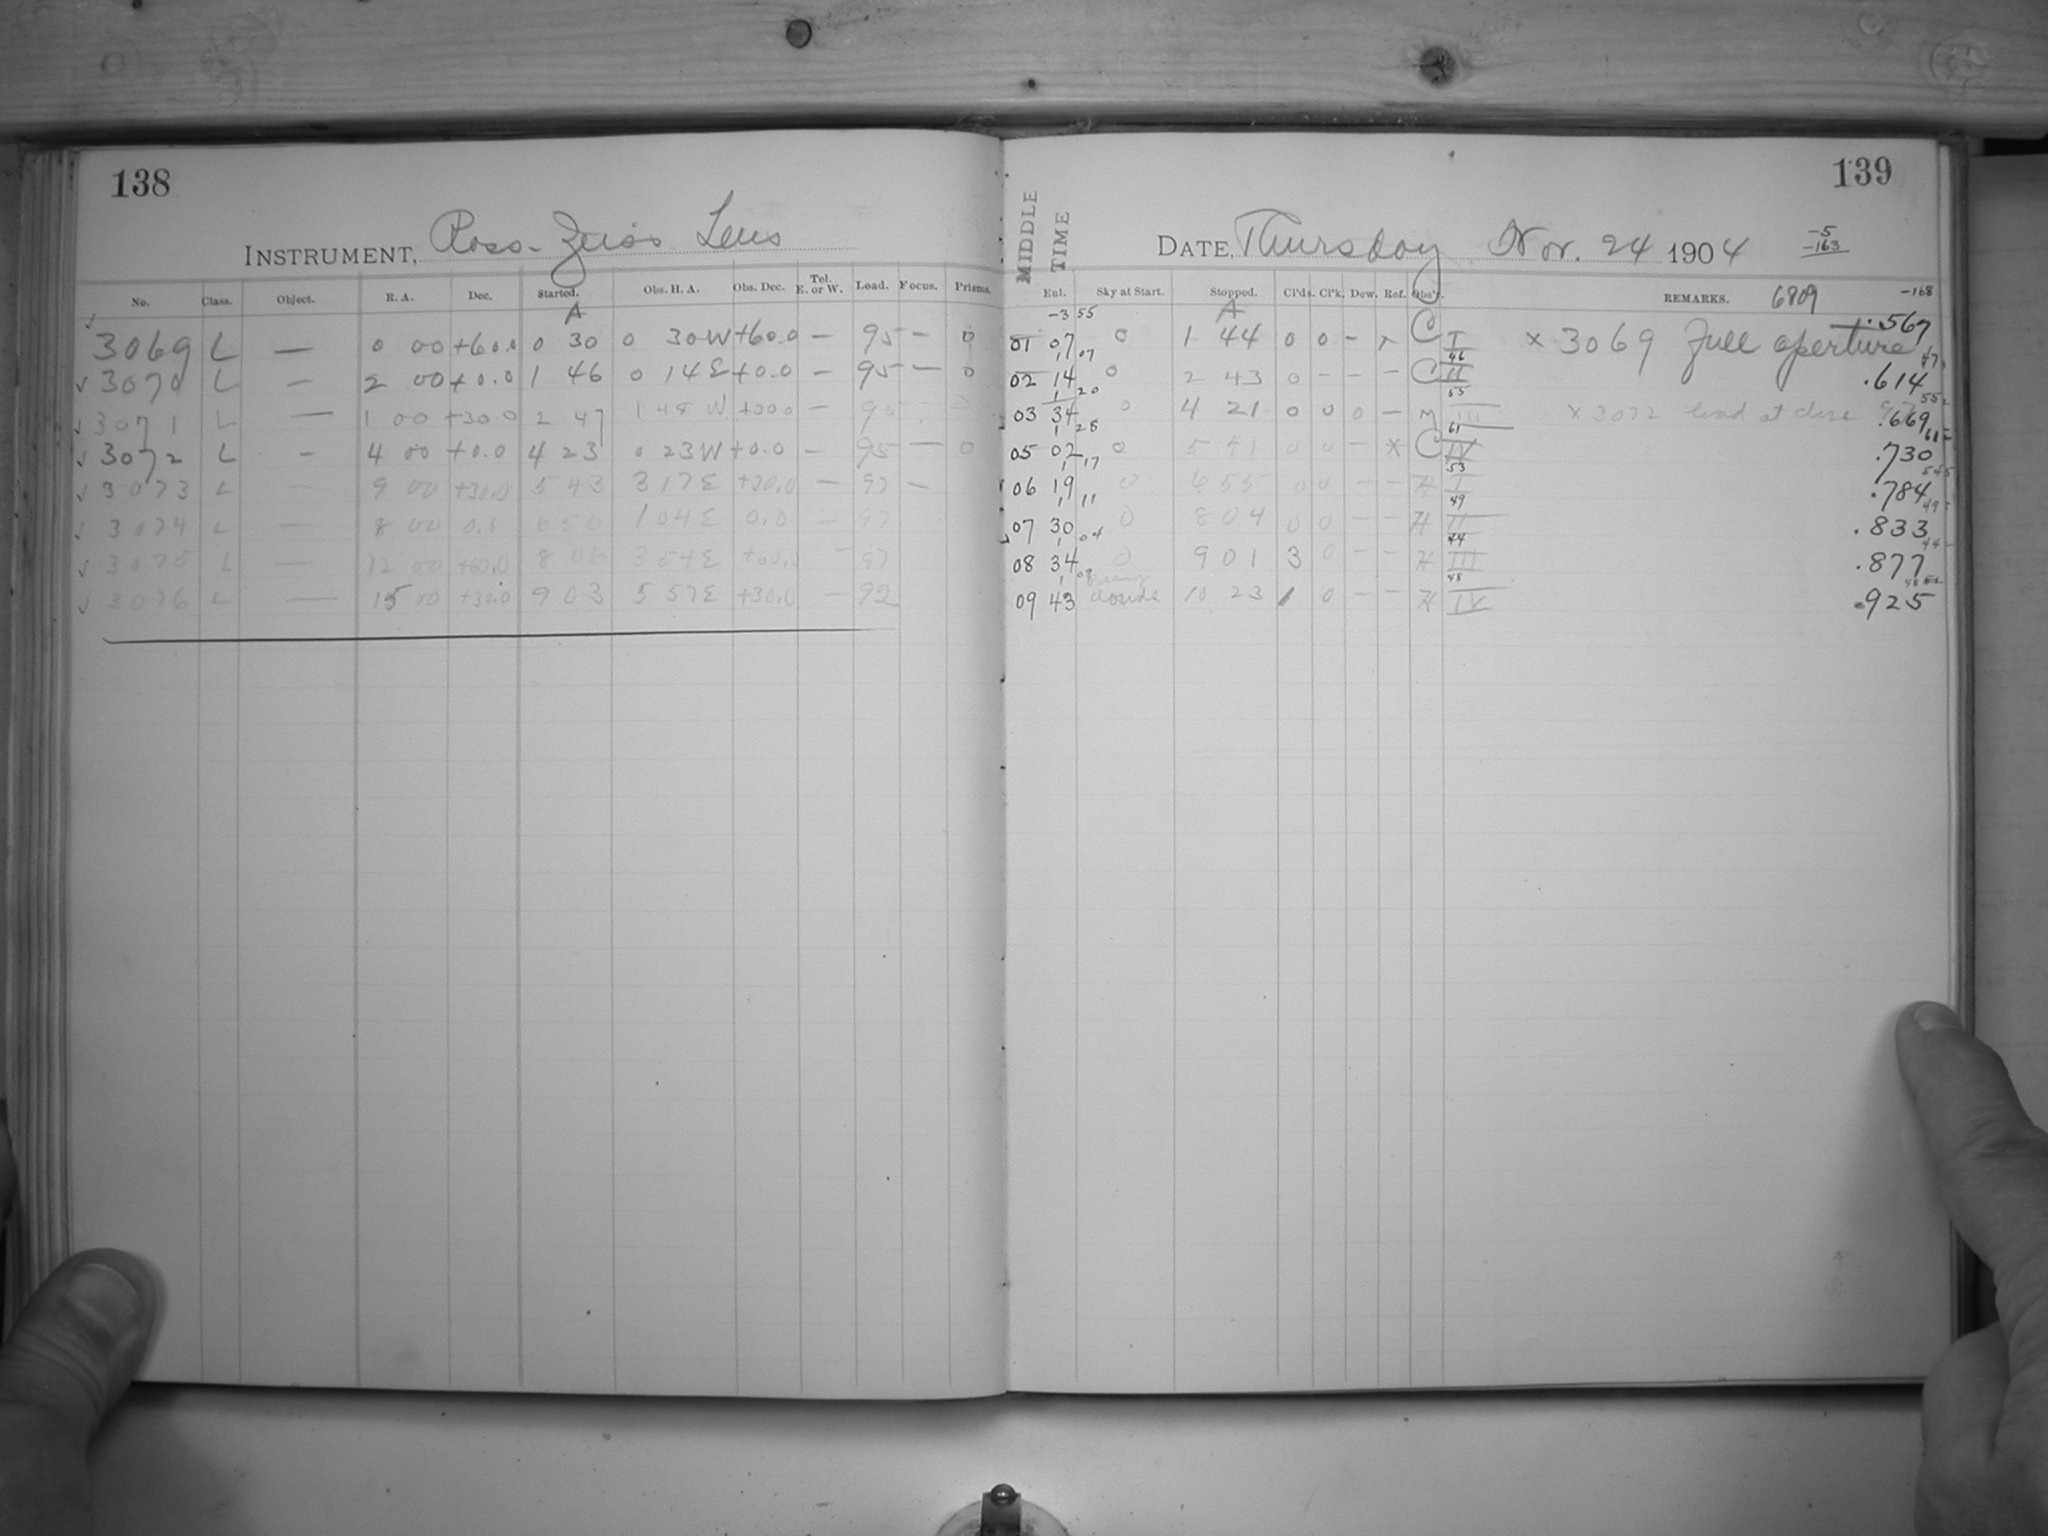 138
INSTRUMENT, Ross-Zeiss Lens
No. Class. Object. R. A. Dec. Started. Obs. H. A. Obs. Dec. Tel. E. or W. Load. Focus. Prisms.
A
3069 L — 0 00 +60.0 0 30 0 30W +60.0 — 95 — 0
✓ 3070 L — 2 00 +0.0 1 46 0 14E +0.0 — 95 — 0
✓ 3071 L — 1 00 +30.0 2 47 1 48 W +30.0 — 95 0
✓ 3072 L — 4 00 +0.0 4 23 0 23W +0.0 — 95 — 0
✓ 3073 L — 9 00 +30.0 5 43 3 17E +30.0 — 97 —
✓ 3074 L — 8 00 0.0 6 56 1 04E 0.0 — 97
✓ 3075 L — 12 00 +60.0 8 06 3 54E +60.0 — 97
✓ 3076 L — 15 00 +30.0 9 03 5 57E +30.0 — 92
139
MIDDLE TIME
DATE, Thursday Nov. 24 1904
-5
-163
-168
Eul. Sky at Start. Stopped. Cl'ds. Cl'k. Dew. Ref. Obs'r. REMARKS. 6809
-3 55 A
01 07 0 1 44 0 0 - x C I x 3069 full aperture .567
1 07 46 47
02 14 0 2 43 0 - - - C II .614
1 20 55
03 34 0 4 21 0 0 0 — M III x 3072 lead at close .669
1 28 61
05 02 0 5 41 0 0 — x C IV .730
1 17 53
06 19 0 6 55 0 0 - - H I .784
1 11 49
07 30 0 8 04 0 0 - - H II .833
1 04 44
08 34 0 9 01 3 0 - - H III .877
1 09 48
09 43 clouds 10 23 1 0 - - H IV .925